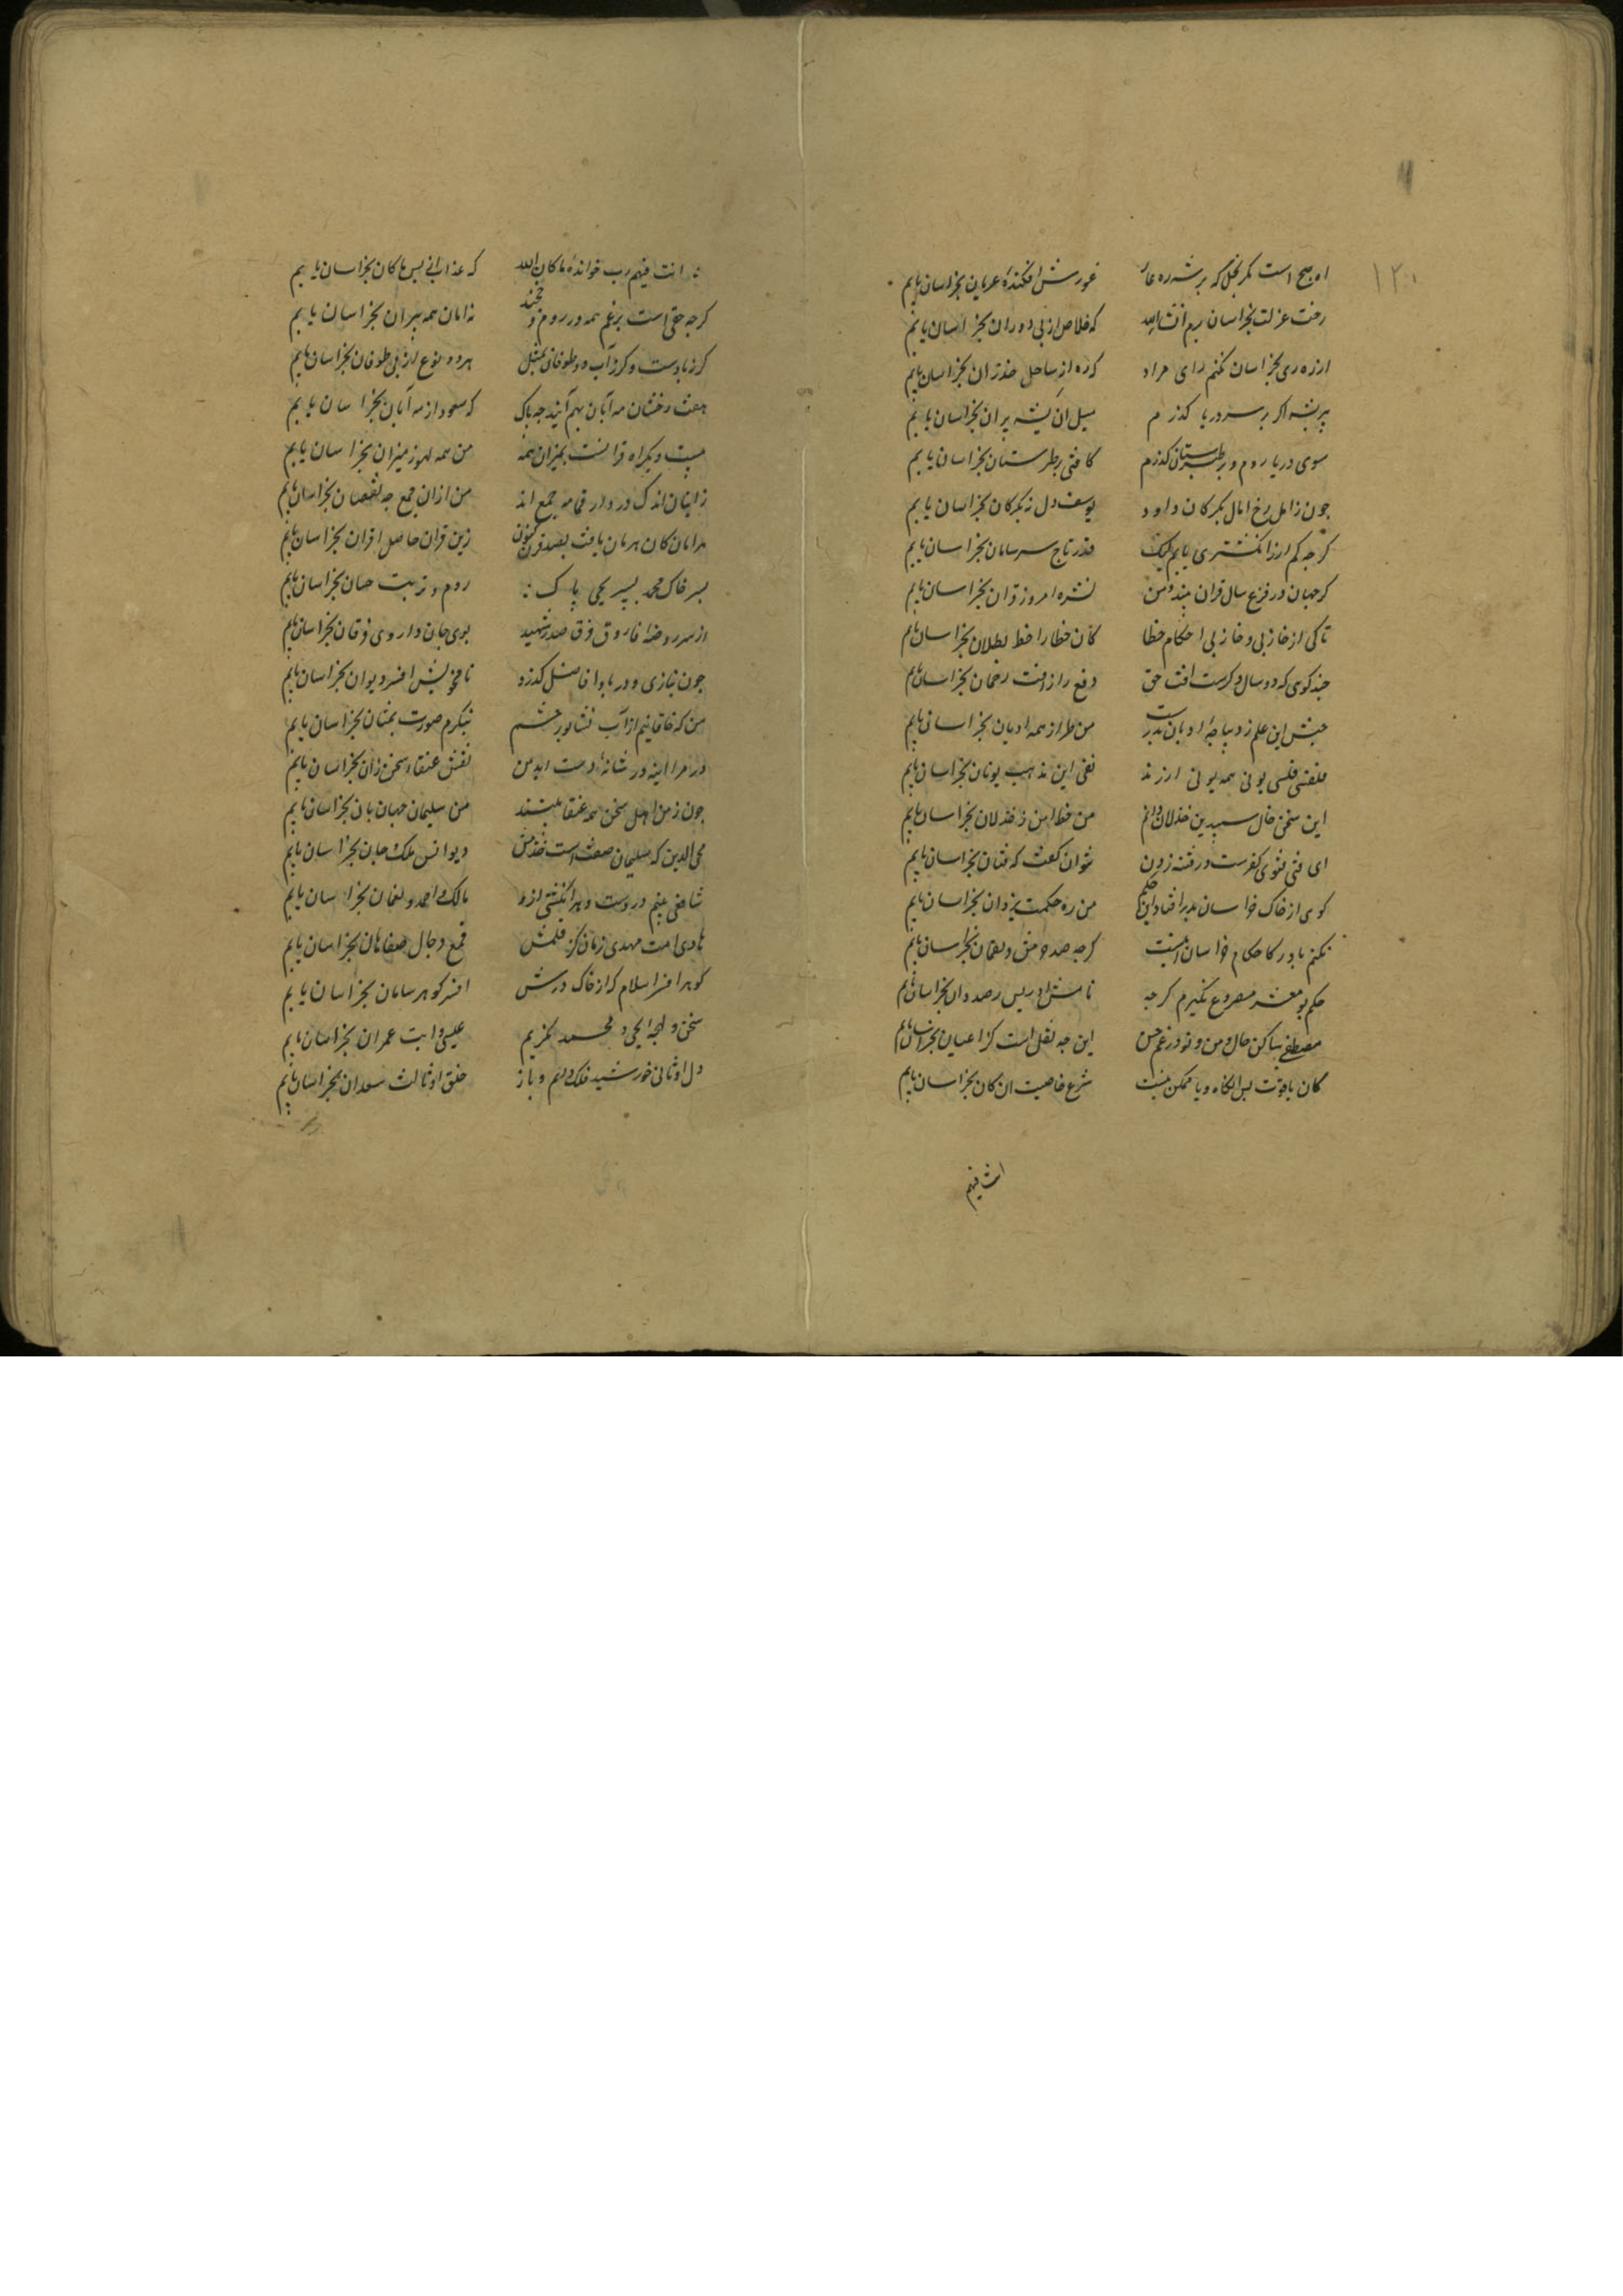 ۱۲۰
اه صبح است مکر نخل که بر شه ره غار غورش افکنده عریان بخراسان یابم
رخت عزلت بخراسان برم انشاالله که خلاص از پی دوران بخراسان یابم
از ره ری بخراسان نکنم رای مراد که ره از ساحل خزران بخراسان یابم
بر سر دریا کذرم سیل ان بخراسان یابم
سوی دریا روم و بر طبرستان کذرم کافتی بر طبرستان بخراسان یابم
چون ز امل رخ امال بکرکان دارد یوسف دل نه بکرکان بخراسان یابم
کرچه کم ارز انکشتری یابم لیک قدر تاج سر سامان بخراسان یابم
کر جهان در فزع سال قران بیند و من نشره امروز قران بخراسان یابم
تا کی از خازنی و خازنی احکام خطا کان خطا را خط بطلان بخراسان یابم
چند کوی که دو سال دکرست افت حق دفع را رافت رحمان بخراسان یابم
جنبش این علم ز دیباچه ادیان بدرست من طراز همه ادیان بخراسان یابم
فلسفی فلسی یونی همه یونی ارزند نفی این مذهب یونان بخراسان یابم
این سخن خال سپیدین خذلان دانم من خط امن ز خذلان بخراسان یابم
ای فتی فتوی کفرست در فتنه زدن نتوان کفت که فتان بخراسان یابم
کوی از خاک خراسان بدر افتاد این حکم من ره حکمت یزدان بخراسان یابم
نکنم باور کاحکام خراسان اینست کرچه صد هرمس و لقمان بخراسان یابم
حکم بومعشر مصروع نکیرم کرچه نامش ادریس رصددان بخراسان یابم
مصطفی ساکن خاک و من و تو در غم خس این چه نقل است کز اعیان بخراسان یابم
کان یاقوت پس انکاه وبا ممکن نیست شرح خاصیت ان کان بخراسان یابم
انت فیهم
انت فیهم رب خوانده ما کان الله که عذاب از پس ما کان بخراسان یابم
کرچه حق است برغم همه در روم و خجند نه امان همه پیران بخراسان یابم
کر ز بادست و کر ز آب دو طوفان بمثل هر دو نوع از پی طوفان بخراسان یابم
هفت رخشان مه آبان بهم آیند چه باک که سعود از مه آبان بخراسان یابم
بیست و یک راه قرانست بمیزان همه من همه لهو ز میزان بخراسان یابم
ز اینان اندک در دار قمامه جمع اند من از ان جمع چه نقصان بخراسان یابم
هرامان کان هرمان یافت بصد قرن کنون زین قران حاصل اقران بخراسان یابم
بسر خاک محمد پسر یحیی پاک روم و تربت حسان بخراسان یابم
از سر روضه فاروق فرق صدر شهید بوی جان داروی فرقان بخراسان یابم
چون نیازی و در باب افاضل کذرد نام خویش افسر دیوان بخراسان یابم
من که خاقانیم از آب نشابور چشم بنکرم صورت بختان بخراسان یابم
در مرا اینه در شانه دست اید من نقش عنقا سخن زان بخراسان یابم
چون ز من اهل سخن همه عنقا بینند من سلیمان جهان بان بخراسان یابم
محی الدین که سلیمان صفت است و خدمتش دیو انس ملک جان بخراسان یابم
شافعی بینم در دست و هر انکشتی ازو مالک و احمد و نعمان بخراسان یابم
هادی امت مهدی زمان کز قلمش قمع دجال صفاهان بخراسان یابم
کوهر افسر اسلام که از خاک درش افسر کوهر سامان بخراسان یابم
سخن و لهجه یحیی و محمد نکریم عیسی و ایت عمران بخراسان یابم
دل او ثانی خورشید فلک دانم و باز خلق او ثالث سعدان بخراسان یابم